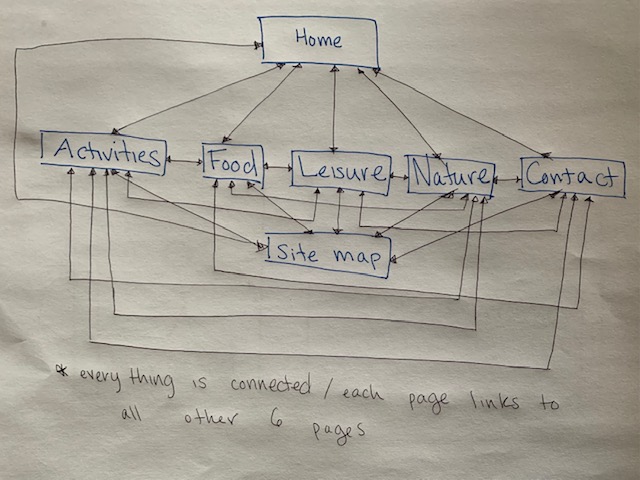 Home
Activities Food Leisure Nature Contact
Site map
* every thing is connected / each page links to
all other 6 pages